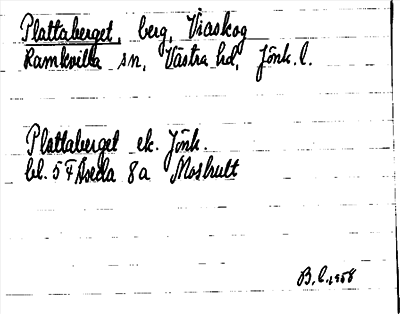 Plattaberget, berg, Viaskog
Ramkvilla sn, Västra hd, Jönk. l.
Plattaberget ek. Jönk.
bl. 5 F Åseda 8a Moshult
B. C. 1958